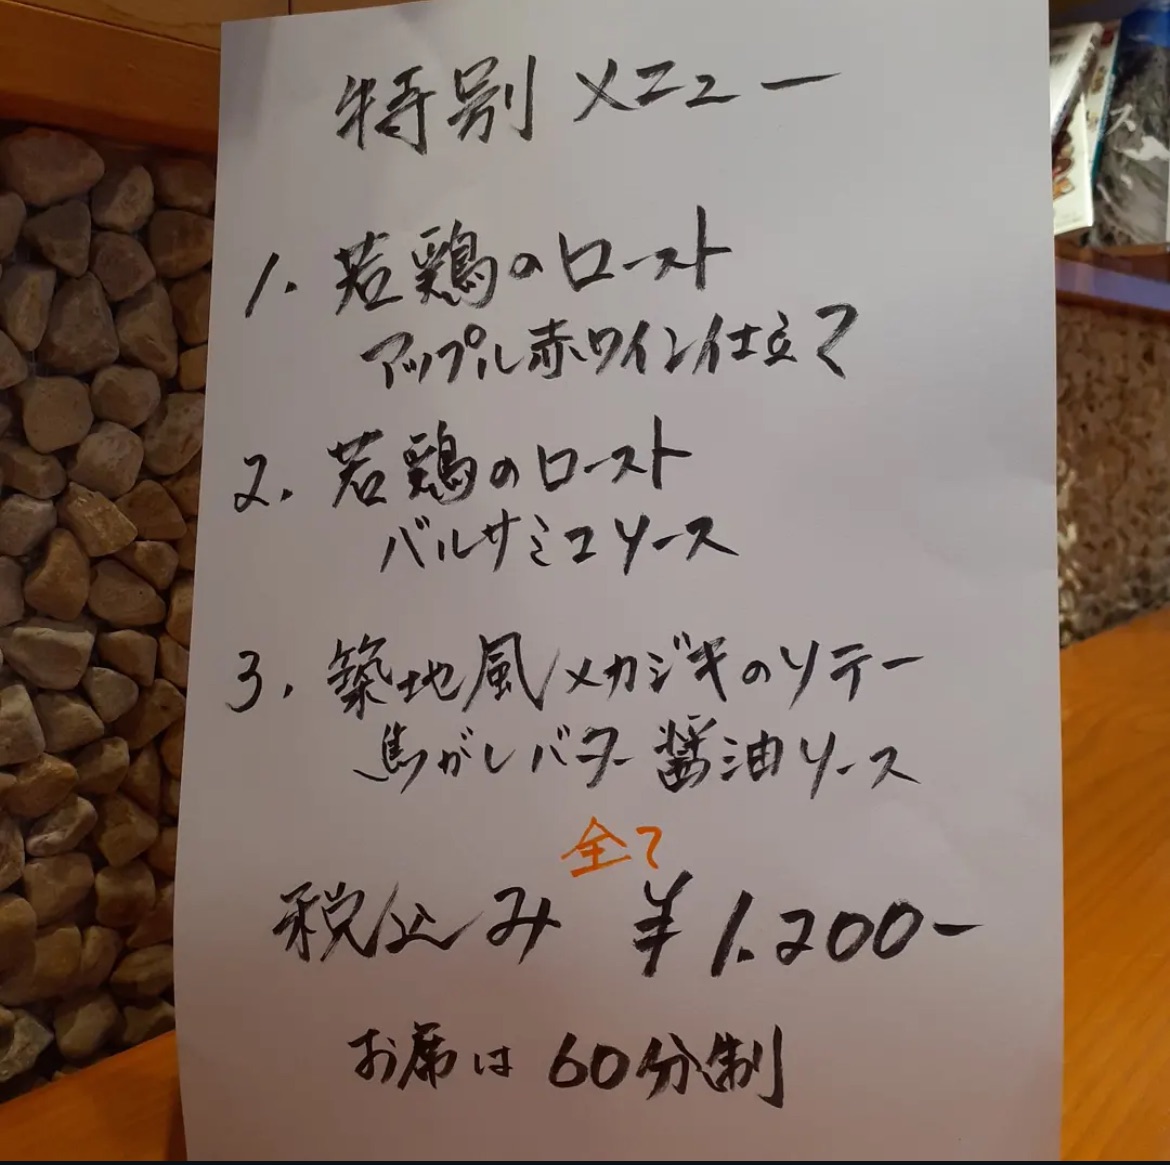 特別メニュー
1. 若鶏のロースト
アップル赤ワイン仕立て
2. 若鶏のロースト
バルサミコソース
3. 築地風メカジキのソテー
焦がしバター醤油ソース
全て
税込み ¥1.200-
お席は60分制
ス